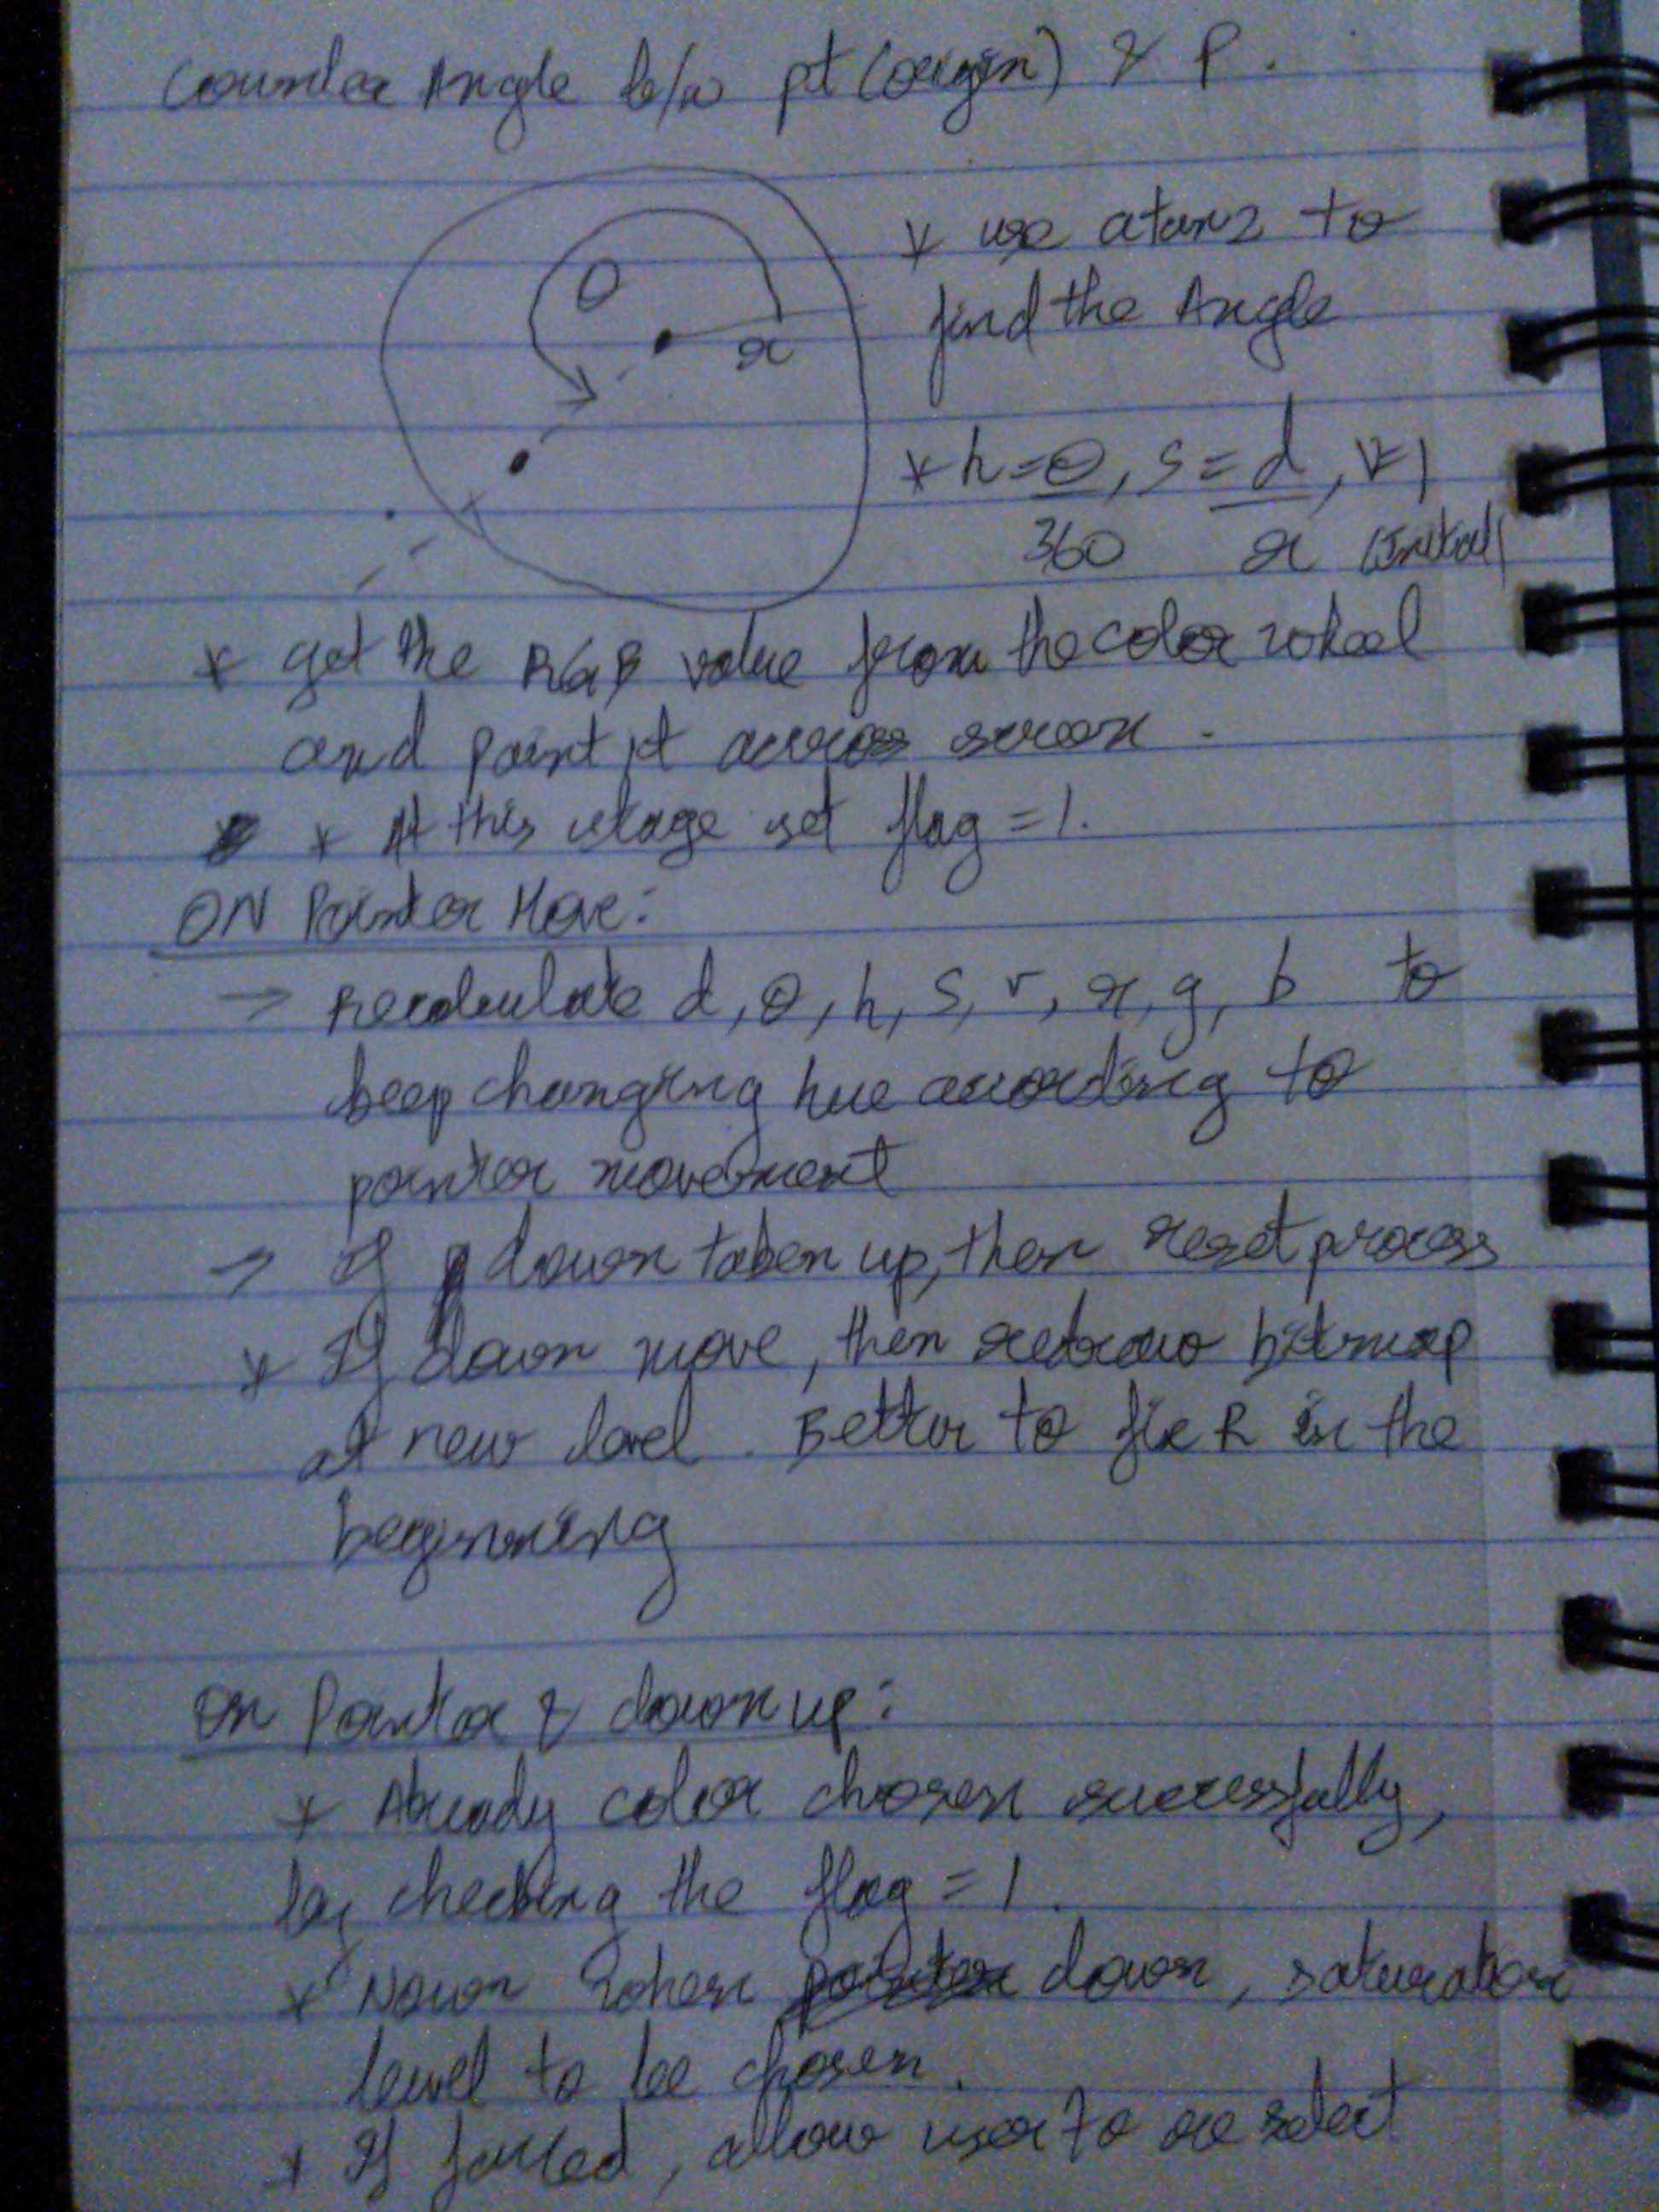 Counter Angle b/w pt (origin) & P.
θ
r
* use atan2 to
find the Angle
* h = θ/360, s = d/r, v=1
(Initial)
* get the RGB value from the color wheel
and paint it across screen.
* At this stage set flag = 1.
ON Pointer Move:
→ Recalculate d, θ, h, s, v, r, g, b to
keep changing hue according to
pointer movement
→ If down taken up, then reset process
* If down move, then redraw bitmap
at new level. Better to fix R in the
beginning
On Pointer & down up:
* Already color chosen successfully,
by checking the flag = 1.
* when down, saturation
level to be chosen.
* If failed, allow user to re select